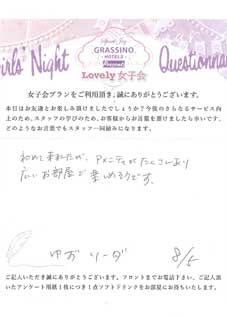 Special Joy
GRASSINO
HOTELS
Girls' Night Questionnai
Lovely 女子会
女子会プランをご利用頂き、誠にありがとうございます。
本日はお友達とお楽しみ頂けましたでしょうか？今後のさらなるサービス向
上のため、スタッフの学びのため、お客様からお言葉を頂けましたら幸いです。
どのようなお言葉でもスタッフ一同励みになります。
初めて来ましたが、アメニティがたくさんあり
広いお部屋で楽しめそうです。
8/5
ご記入いただき誠にありがとうございます。フロントまでお電話下さい。ご記入頂
いたアンケート用紙1枚につき1点ソフトドリンクをお部屋にお持ちいたします。